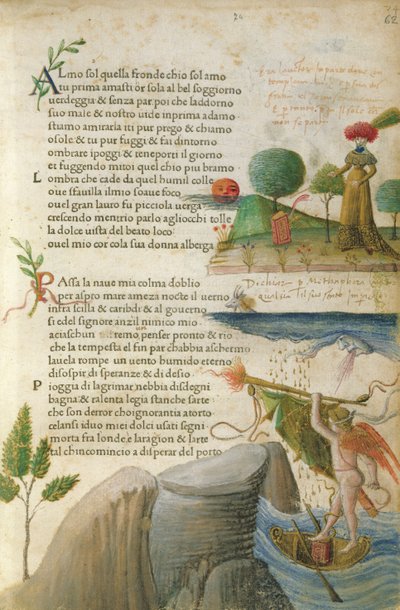 74
62
ALmo sol quella fronde chio sol amo
tu prima amasti or sola al bel soggiorno
uerdeggia & senza par poi che laddorno
suo male & nostro uide inprima adamo
stiamo amirarla itu pur prego & chiamo
osole & tu pur fuggi & fai dintorno
ombrare ipoggi & teneporti il giorno
et fuggendo mitoi quel chio piu bramo
Lombra che cade da quel humil colle
oue sfauilla ilmio soaue foco
ouel gran lauro fu picciola uerga
crescendo mentrio parlo agliocchi tolle
la dolce uista del beato loco
ouel mio cor cola sua donna alberga
PAssa la naue mia colma doblio
per aspro mare ameza nocte il uerno
infra scilla & caribdi & al gouerno
si edel signore anzil nimico mio
aciaschun remo penser pronto & rio
che la tempesta el fin par chabbia aschermo
lauela rompe un uento humido eterno
disospir di speranze & di desio
Pioggia di lagrimar nebbia disdegni
bagna & ralenta legia stanche sarte
che son derror choignorantia atorto
celansi iduo miei dolci usati segni
morta fra londe e laragion & larte
tal chincomincio a disperar del porto